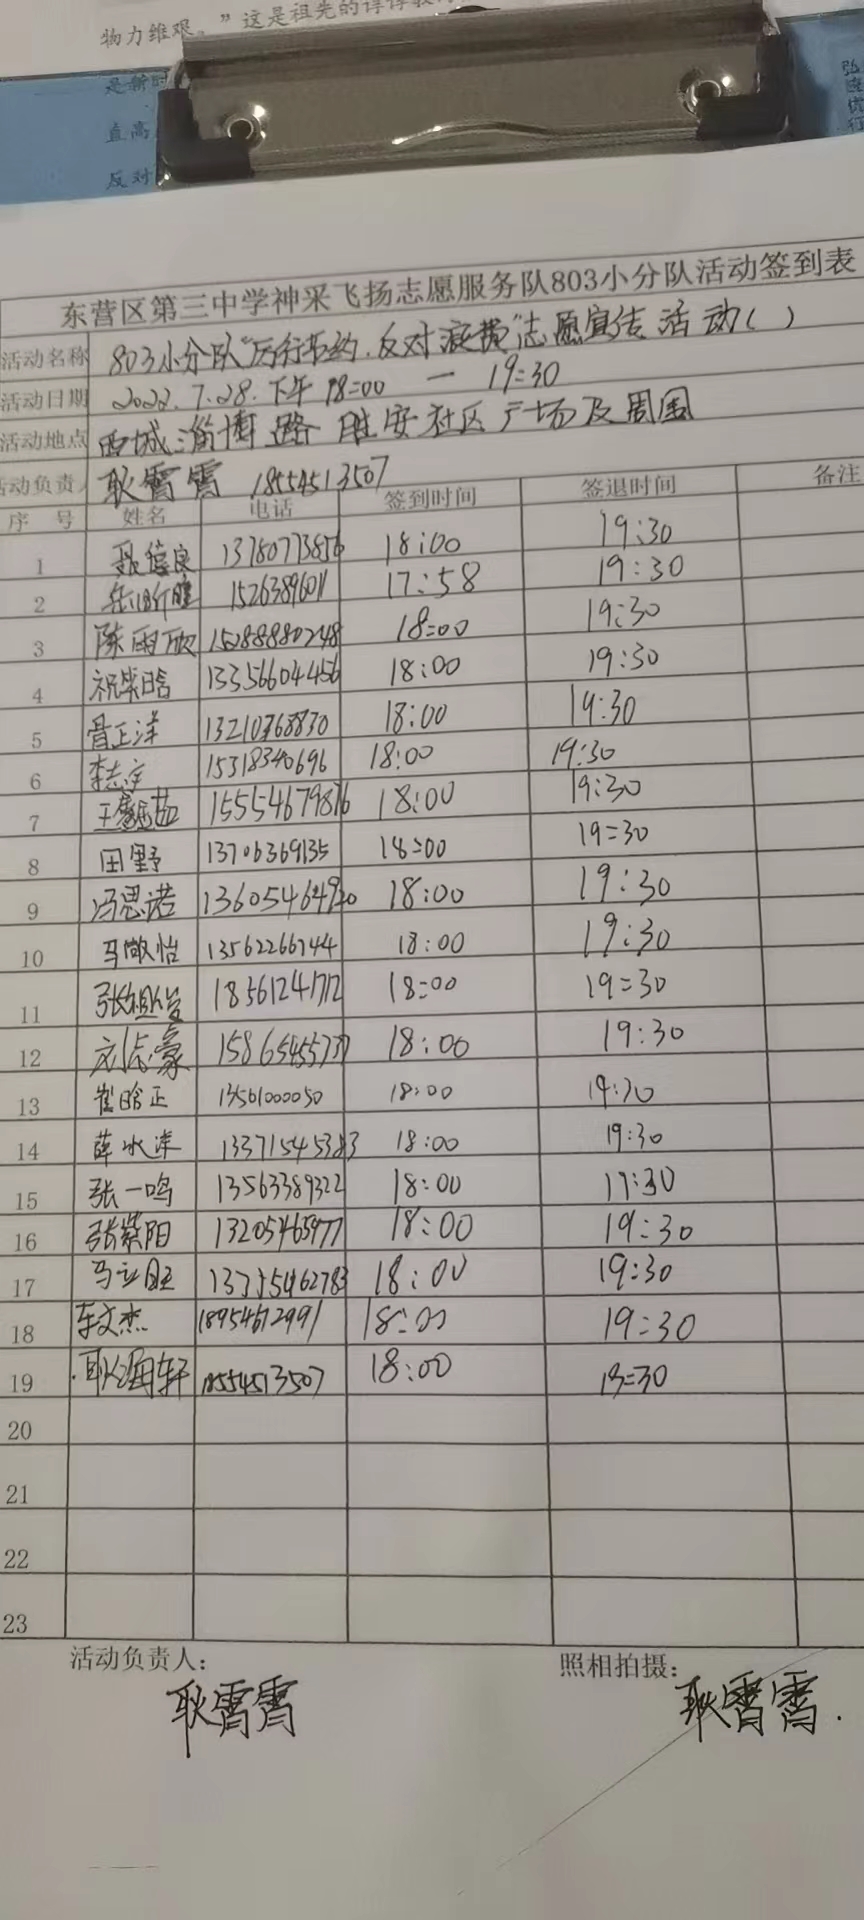 物力维艰。”这是祖先的谆谆教
是新时
直高
反对
弘
东营区第三中学神采飞扬志愿服务队803小分队活动签到表
活动名称 803小分队“厉行节约.反对浪费”志愿宣传活动( )
活动日期 2022.7.28.下午 18:00 — 19:30
活动地点 西城淄博路胜安社区广场及周围
活动负责人 耿霄霄 18554513507
序 号 姓名 电话 签到时间 签退时间 备注
1 聂德良 13780773856 18:00 19:30
2 15263896011 17:58 19:30
3 陈雨欣 15288880248 18:00 19:30
4 祝紫晗 13356604456 18:00 19:30
5 胥正洋 13210368830 18:00 19:30
6 李志宇 15318340696 18:00 19:30
7 18:00 19:30
8 田野 13706369135 18:00 19:30
9 冯思诺 18:00 19:30
10 马敬怡 13562266744 18:00 19:30
11 18561241712 18:00 19:30
12 刘志豪 18:00 19:30
13 崔晗正 13561000050 18:00 19:30
14 薛水洋 13371545383 18:00 19:30
15 张一鸣 13563389322 18:00 19:30
16 张紫阳 13205465977 18:00 19:30
17 马立旺 18:00 19:30
18 车文杰 18954612991 18:00 19:30
19 耿海轩 18554513507 18:00 19:30
20
21
22
23
活动负责人: 照相拍摄:
耿霄霄 耿霄霄.